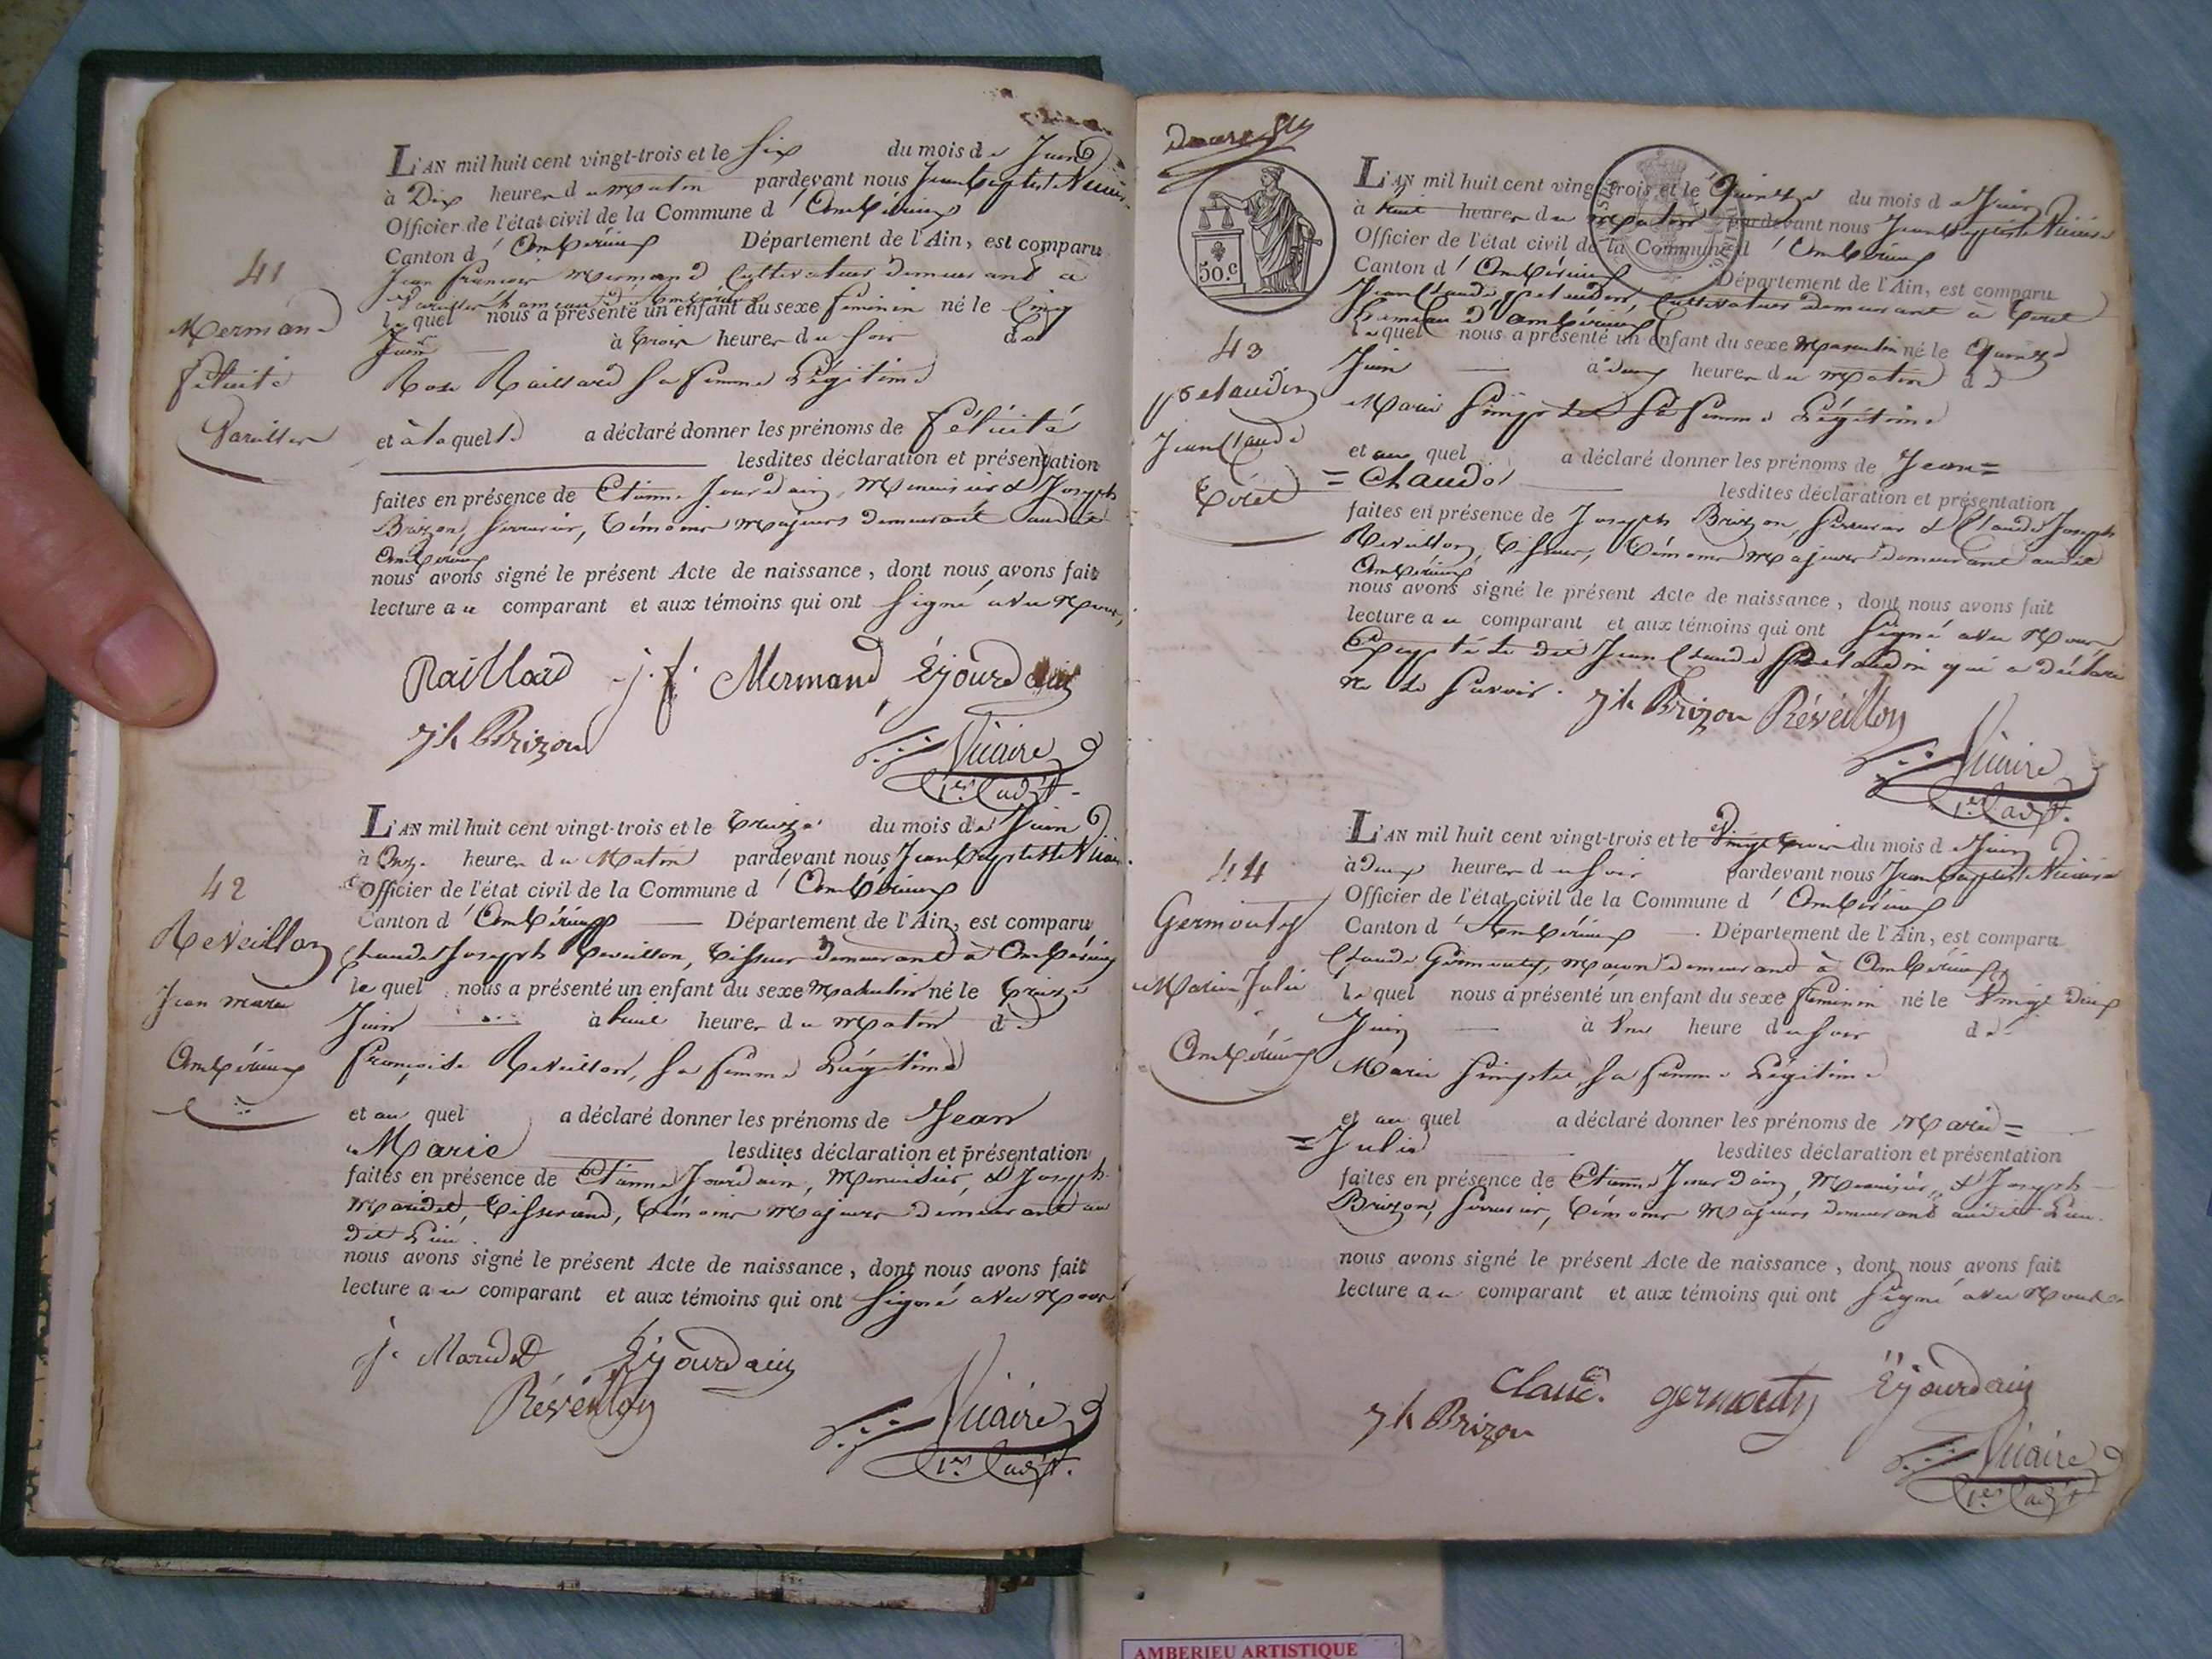 L'AN mil huit cent vingt-trois et le six du mois de Juin
à Dix heures du matin pardevant nous Jean Baptiste Vicaire
Officier de l'état civil de la Commune d'Ambérieux
Canton d'Ambérieux Département de l'Ain, est comparu
Jean François Mermand Cultivateur demeurant à
Vareilles hameau d'Ambérieux
lequel nous a présenté un enfant du sexe féminin né le Cinq
Juin à trois heures du soir de
Rose Raillard sa femme Légitime
et à laquelle a déclaré donner les prénoms de Félicité
lesdites déclaration et présentation
faites en présence de Etienne Jourdain, Menuisier & Joseph
Brizon, serrurier, témoins majeurs demeurant audit
Ambérieux
nous avons signé le présent Acte de naissance, dont nous avons fait
lecture au comparant et aux témoins qui ont signé avec nous,
Raillard j. f. Mermand E jourdain
Jh Brizon
Vicaire
1er adjt.
41
Mermand
félicité
Vareilles
L'AN mil huit cent vingt-trois et le treize du mois de Juin
à Onze heures du matin pardevant nous Jean Baptiste Vicaire
Officier de l'état civil de la Commune d'Ambérieux
Canton d'Ambérieux Département de l'Ain, est comparu
Claude Joseph Reveillon, tisseur demeurant à Ambérieux
lequel nous a présenté un enfant du sexe masculin né le treize
Juin à huit heures du matin de
Françoise Reveillon, sa femme Légitime
et au quel a déclaré donner les prénoms de Jean
Marie lesdites déclaration et présentation
faites en présence de Etienne Jourdain, Menuisier, & Joseph
Maridet, tisserand, témoins majeurs demeurant au
dit Lieu.
nous avons signé le présent Acte de naissance, dont nous avons fait
lecture au comparant et aux témoins qui ont signé avec nous
j. Maridet E jourdain
Réveillon
Vicaire
1er adjt.
42
Reveillon
Jean marie
Ambérieux
50.c
L'AN mil huit cent vingt-trois et le Quinze du mois de Juin
à huit heures du matin pardevant nous Jean Baptiste Vicaire
Officier de l'état civil de la Commune d'Ambérieux
Canton d'Ambérieux Département de l'Ain, est comparu
Jean Claude Cultivateur demeurant à Tiret
hameau d'Ambérieux
lequel nous a présenté un enfant du sexe masculin né le Quinze
Juin à deux heures du matin de
Marie sa femme Légitime
et au quel a déclaré donner les prénoms de Jean=
=Chaude lesdites déclaration et présentation
faites en présence de Joseph Brizon, serrurier & Claude Joseph
Reveillon, tisseur, témoins majeurs demeurant audit
Ambérieux
nous avons signé le présent Acte de naissance, dont nous avons fait
lecture au comparant et aux témoins qui ont signé avec nous
Excepté le dit Jean Claude qui a déclaré
ne le savoir. Jh Brizon Réveillon
Vicaire
1er adjt.
43
Jean Claude
Tiret
L'AN mil huit cent vingt-trois et le Vingt trois du mois de Juin
à Deux heures du soir pardevant nous Jean Baptiste Vicaire
Officier de l'état civil de la Commune d'Ambérieux
Canton d'Ambérieux Département de l'Ain, est comparu
Claude Germouty, maçon demeurant à Ambérieux
lequel nous a présenté un enfant du sexe féminin né le Vingt Deux
Juin à Une heure du soir de
Marie sa femme Légitime
et au quel a déclaré donner les prénoms de Marie=
=Julie lesdites déclaration et présentation
faites en présence de Etienne Jourdain, Menuisier, & Joseph
Brizon, serrurier, témoins majeurs demeurant audit Lieu.
nous avons signé le présent Acte de naissance, dont nous avons fait
lecture au comparant et aux témoins qui ont signé avec nous
Claude germouty E jourdain
Jh Brizon
Vicaire
1er adjt
44
Germouty
Marie Julie
Ambérieux
AMBERIEU ARTISTIQUE